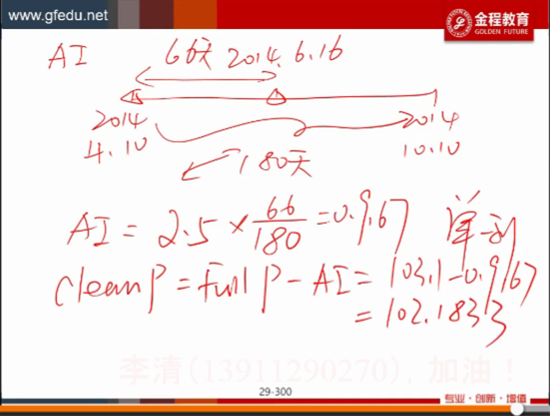 www.gfedu.net
金程教育
GOLDEN FUTURE
AI 66天 2014.6.16
2014 2014
4.10 10.10
180天
AI = 2.5 × 66/180 = 0.9167 单利
Clean P = Full P - AI = 103.1 - 0.9167
= 102.1833
李清(13911290270), 加油！
29-300
专业·创新·增值